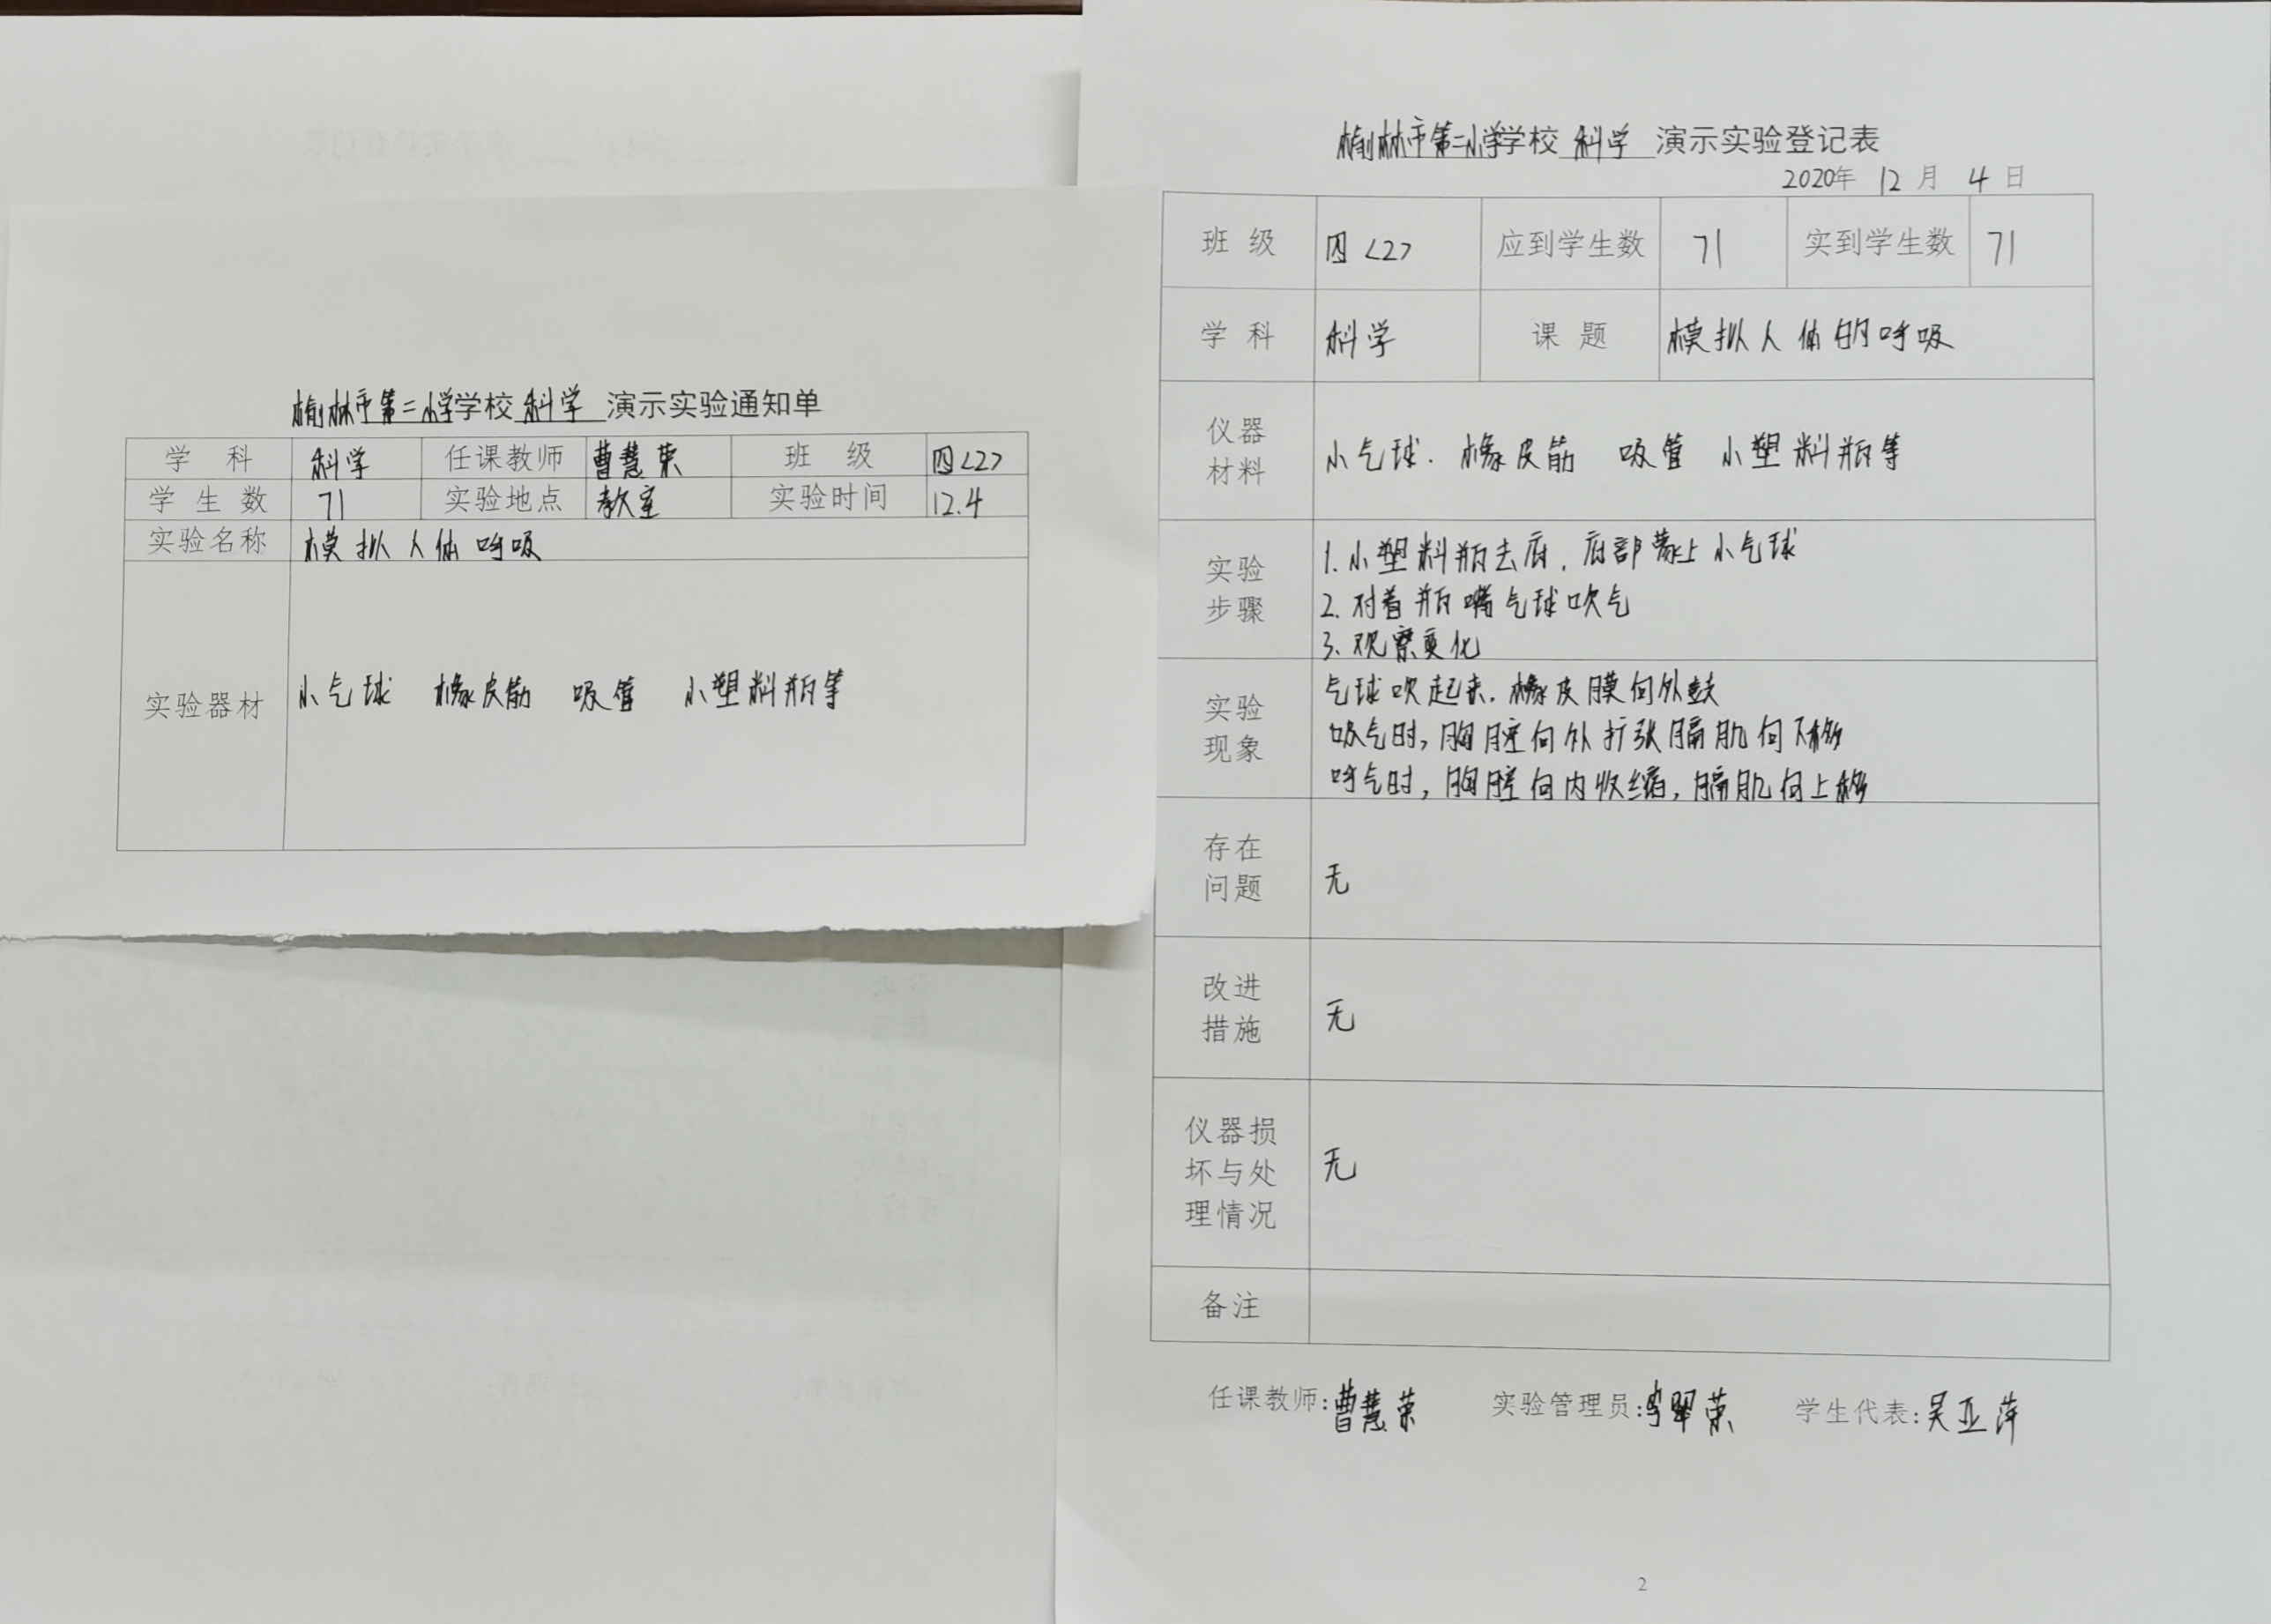 榆林市第二小学学校 科学 演示实验通知单
学 科 科学 任课教师 曹慧荣 班 级 四<2>
学 生 数 71 实验地点 教室 实验时间 12.4
实验名称 模拟人体呼吸
实验器材 小气球 橡皮筋 吸管 小塑料瓶等
榆林市第二小学学校 科学 演示实验登记表
2020年 12 月 4 日
班 级 四<2> 应到学生数 71 实到学生数 71
学 科 科学 课 题 模拟人体的呼吸
仪器
材料
小气球. 橡皮筋 吸管 小塑料瓶等
实验
步骤
1. 小塑料瓶去底, 底部蒙上小气球
2. 对着瓶嘴气球吹气
3. 观察变化
实验
现象
气球吹起来. 橡皮膜向外鼓
吸气时, 胸腔向外扩张膈肌向下移
呼气时, 胸腔向内收缩, 膈肌向上移
存在
问题
无
改进
措施
无
仪器损
坏与处
理情况
无
备注
任课教师:曹慧荣 实验管理员: 翠荣 学生代表:吴亚萍
2